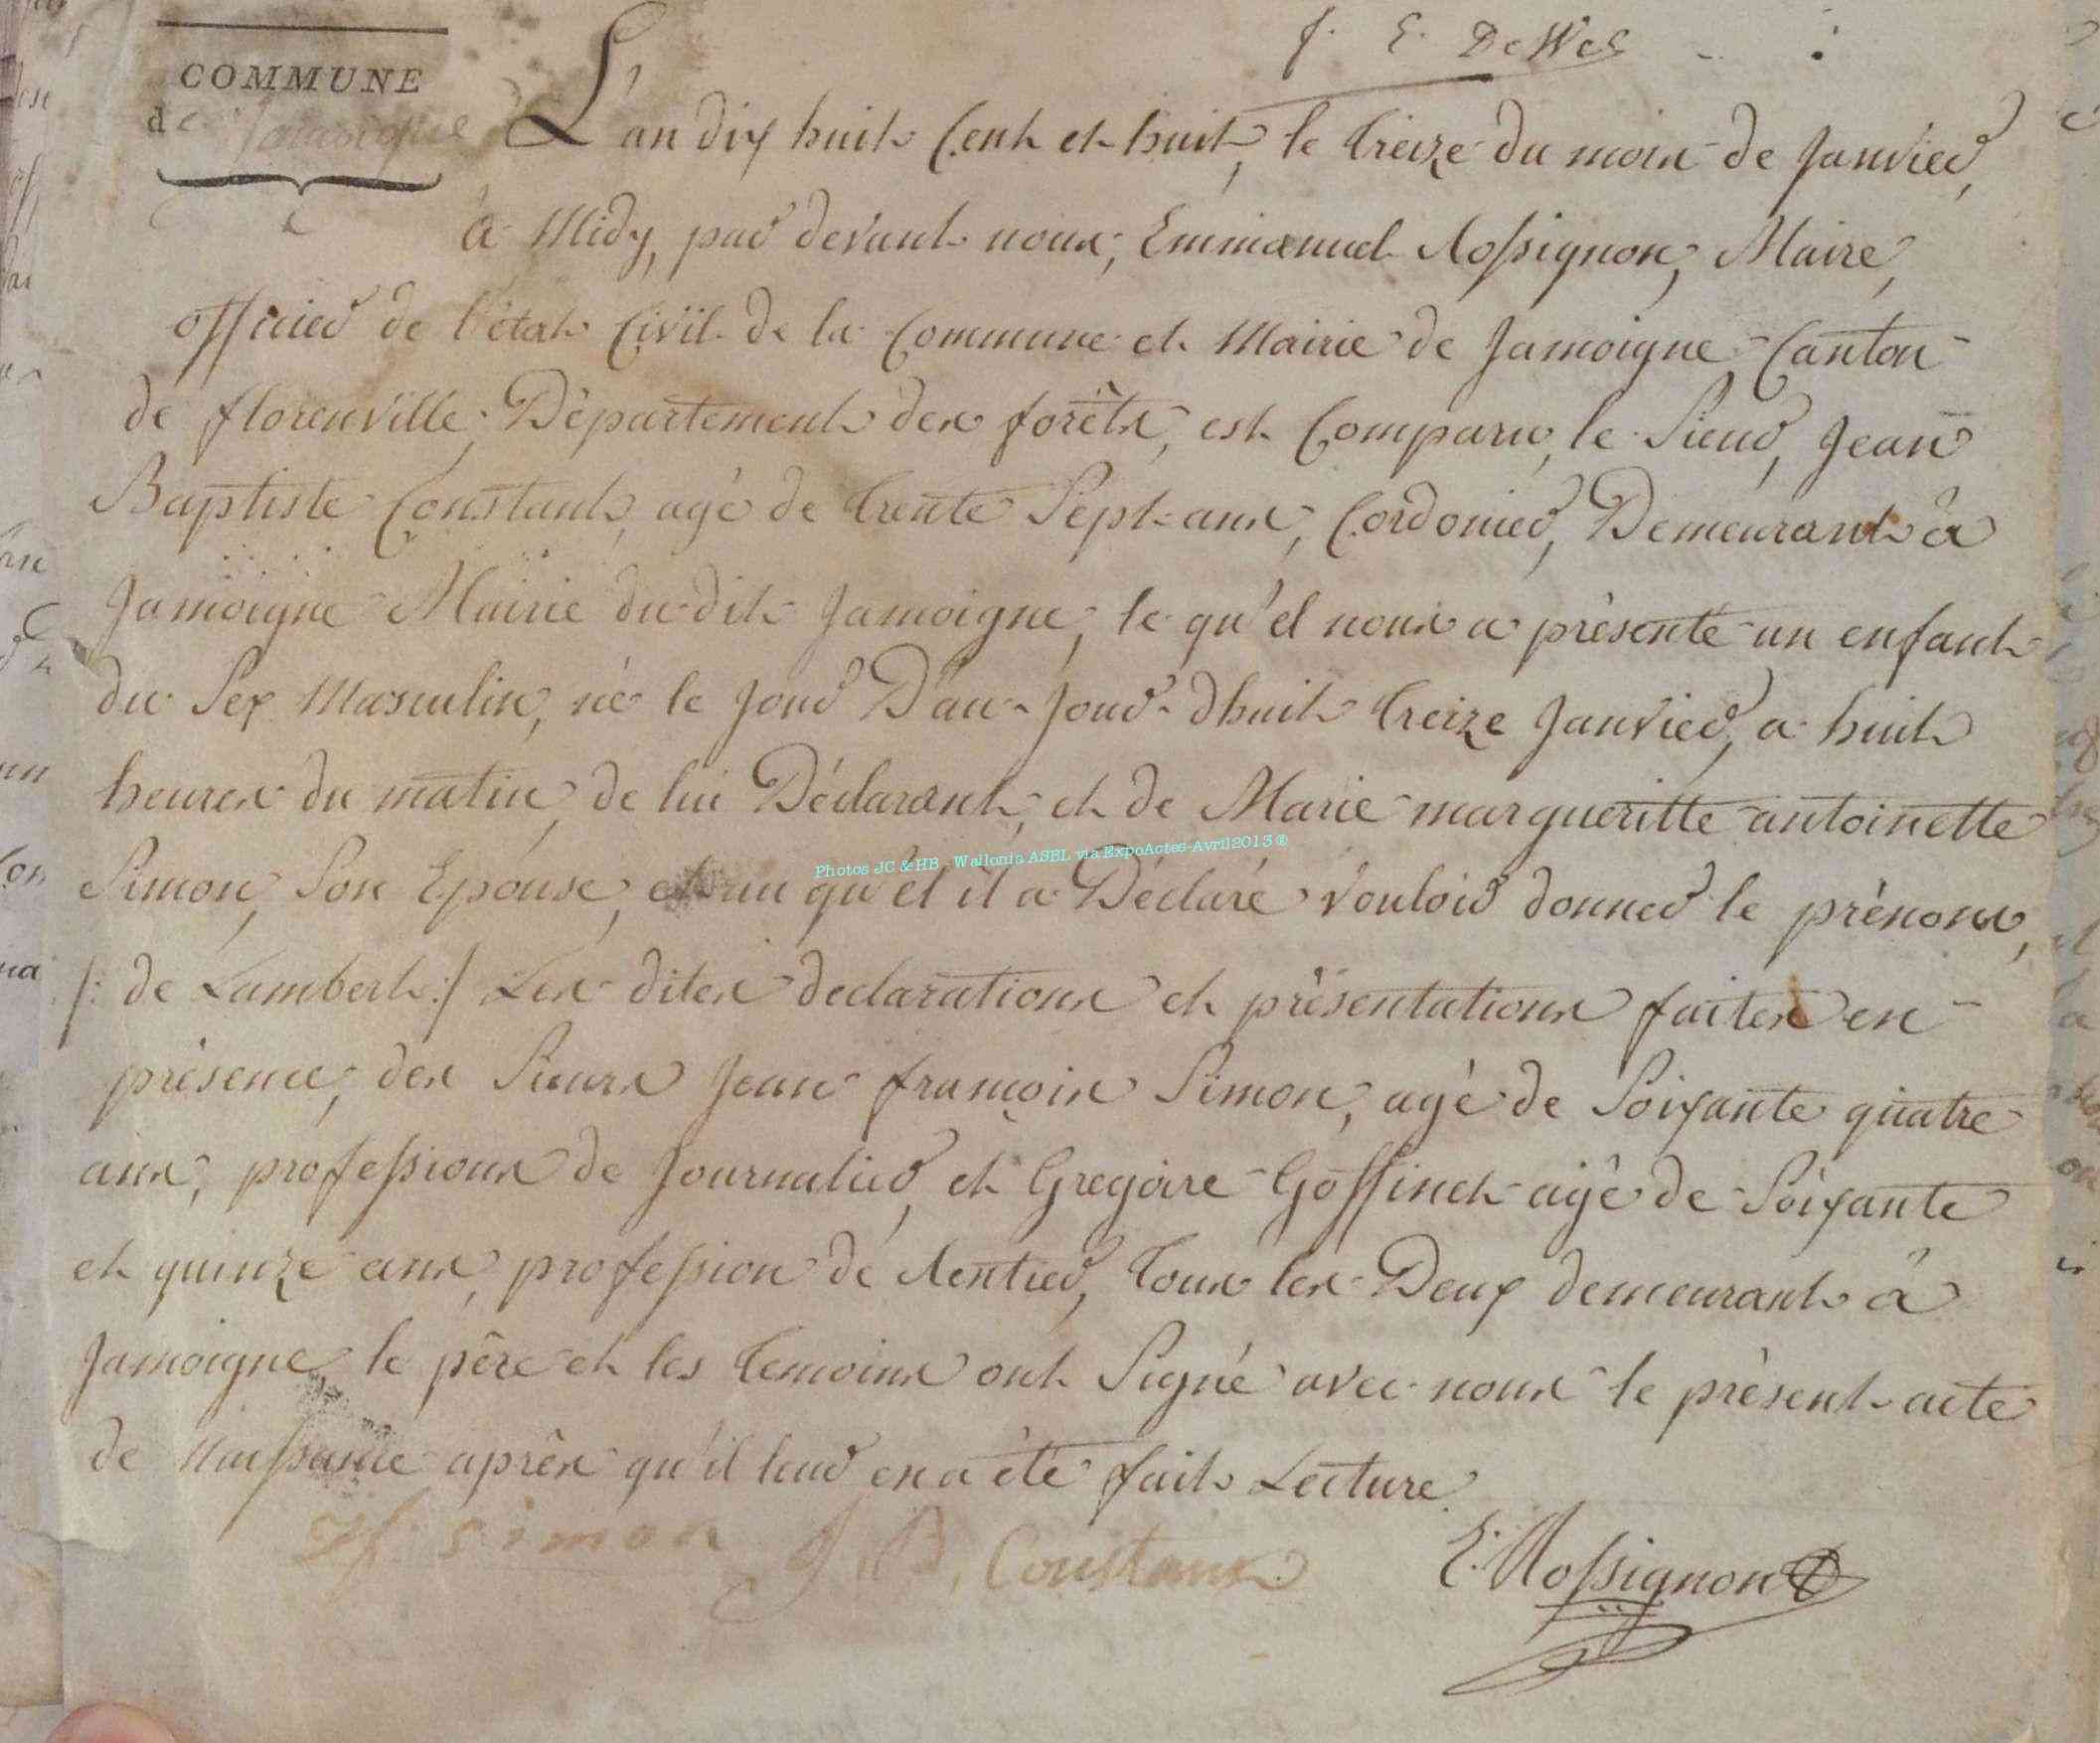 J. E. DeWes
COMMUNE
de Jamoigne
L'an dix huit Cent et huit, le treize du mois de Janvier,
a Midy, par devant nous, Emmanuel Rossignon, Maire,
officier de l'état Civil de la Commune et Mairie de Jamoigne Canton
de florenville, Département des forêts, est Comparu, le Sieur, Jean
Baptiste Constant, agé de trente Sept ans, Cordonier, Demeurant à
Jamoigne Mairie du dit Jamoigne, le qu'el nous a présenté un enfant
du Sex Masculin, né le jour D'au-jour-dhuit treize Janvier, a huit
heures du matin, de lui Déclarant, et de Marie margueritte antoinette
Simon, Son Epouse, et au qu'el il a Déclaré vouloir donner le prénoms,
/: de Lambert :/ Les dites declarations et présentations faites en
présence, des Sieurs Jean françois Simon, agé de Soixante quatre
ans, professions de Journalier, et Gregoire Goffinet agé de Soixante
et quinze ans, profession de Rentier, tous les Deux demeurant à
Jamoigne, le père et les temoins ont Signé avec nous le présent acte
de Naissance après qu'il leur en a été fait Lecture.
Simon J. B. Constant E. Rossignon
Photos JC & HB - Wallonia ASBL via ExpoActes-Avril2013 ®